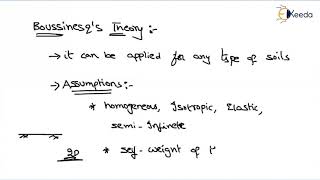 Ekeeda
Boussinesq's Theory :-
→ it can be applied for any type of soils
→ Assumptions :-
* homogeneous, Isotropic, Elastic,
semi-Infinite
* self-weight of t